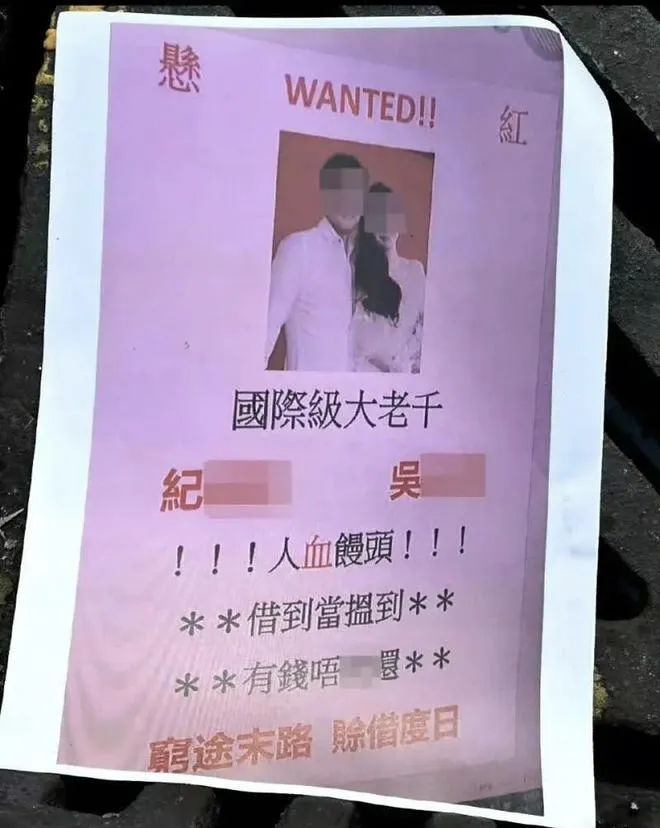 懸 WANTED!! 紅
國際級大老千
紀 吳
！！！人血饅頭！！！
＊＊借到當搵到＊＊
＊＊有錢唔 還＊＊
窮途末路 賒借度日